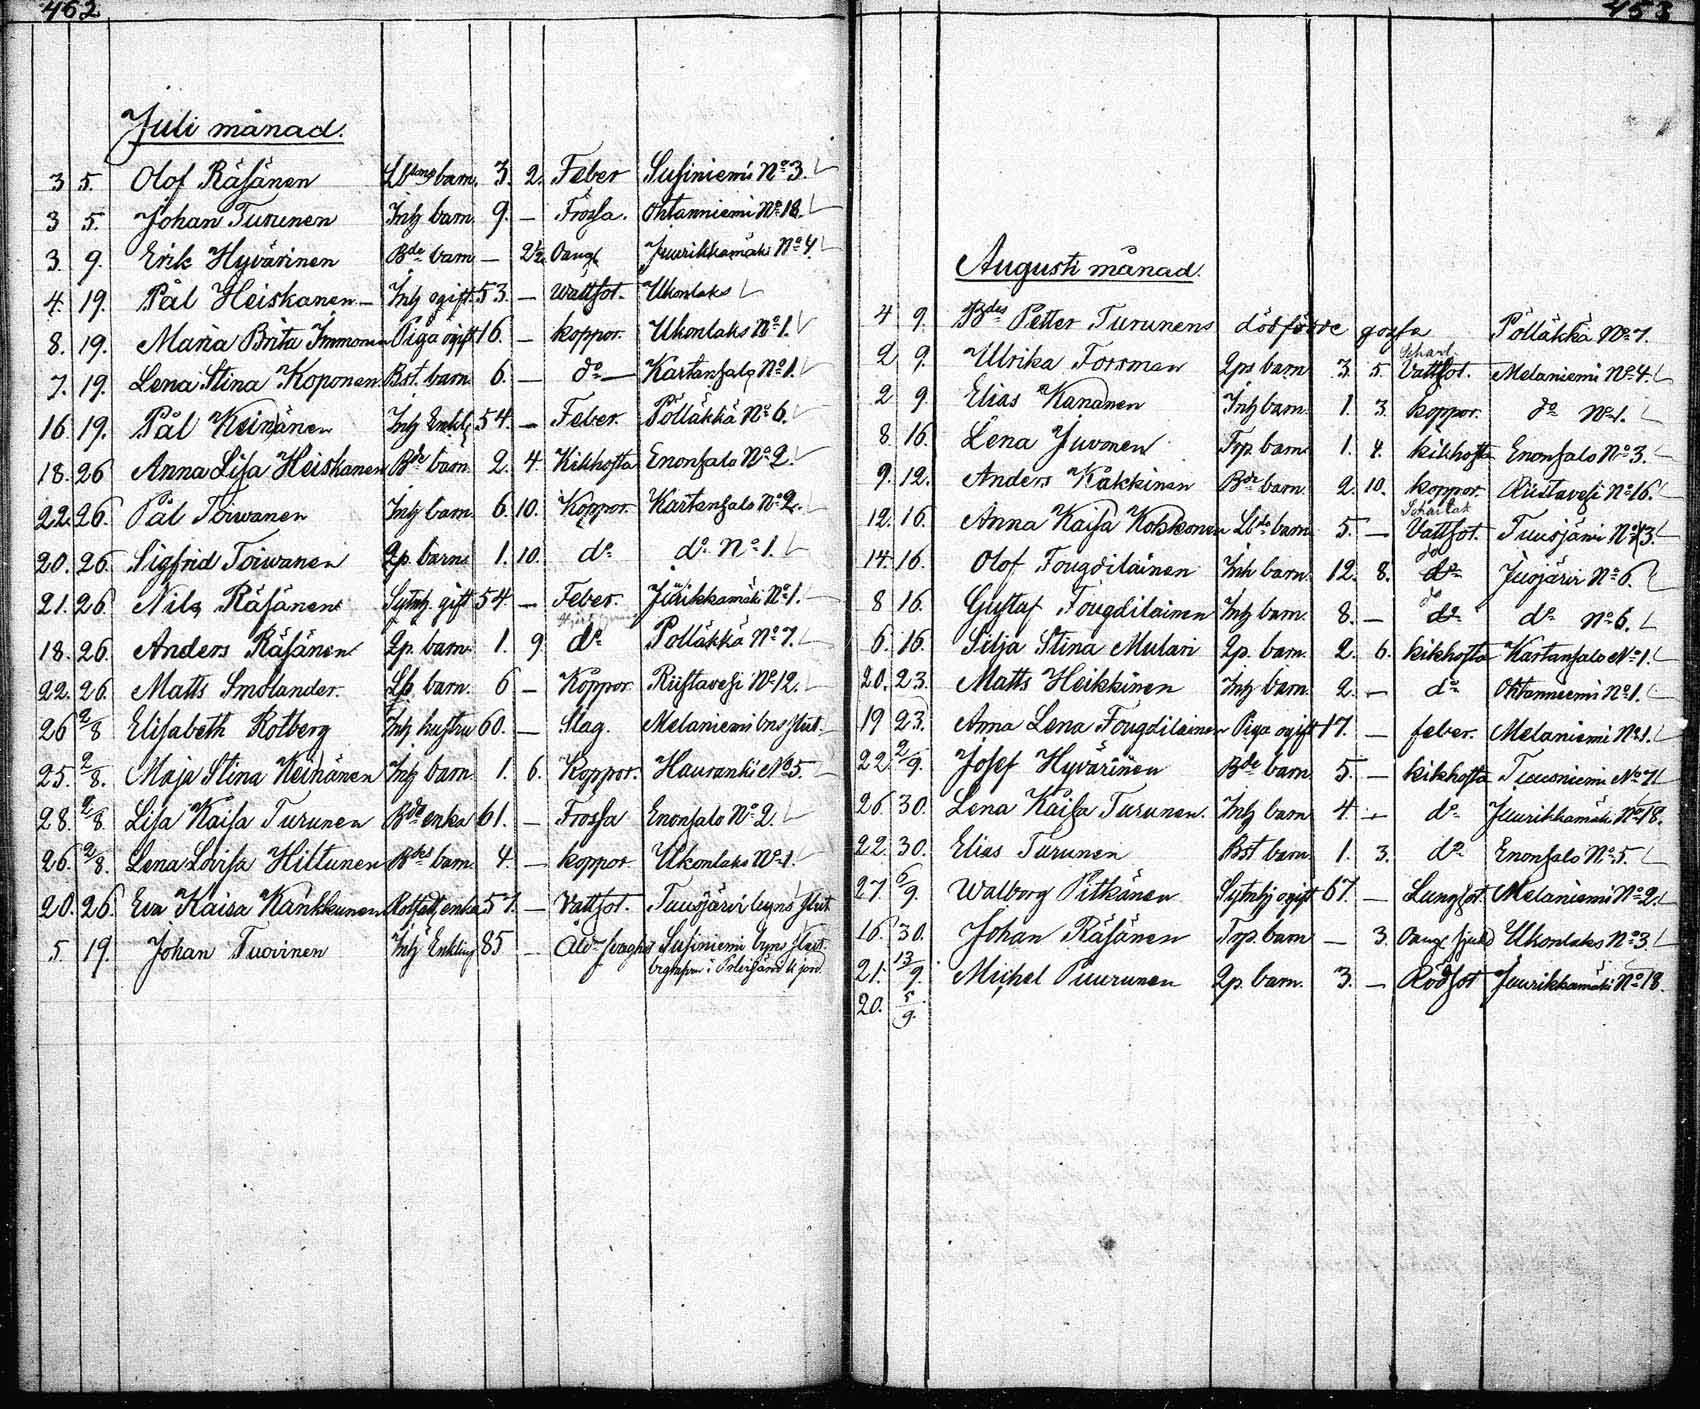 452
Juli månad.
3 5. Olof Räsänen Lbtens barn. 3. 2. Feber Susiniemi No 3.
3 5. Johan Turunen Inh barn 9. — Frossa. Ohtanniemi No 18.
3. 9. Erik Hyvärinen Bde barn — 2½ Juurikkamäki No 4
4. 19. Pål Heiskanen — Inh ogift. 53. — Wattsot. Ukonlaks
8. 19. Maria Brita Immonen Piga ogift 16. — koppor. Ukonlaks No 1.
7. 19. Lena Stina Koponen Bst. barn 6. — do — Kartansalo No 1.
16. 19. Pål Keinänen Inh Enkl. 54. — Feber. Pölläkkä No 6.
18. 26 Anna Lisa Heiskanen Bde barn 2. 4. Kikhosta Enonsalo No 2.
22. 26. Pål Toiwanen Inh barn. 6. 10. Koppor. Kartansalo No 2.
20. 26. Sigfrid Toiwanen Lp. barns 1. 10. do do No 1.
21. 26. Nils Räsänen Sytnh. gift 54. — Feber. Juurikkamäki No 1.
18. 26. Anders Räsänen Lp. barn 1. 9. do Pölläkkä No 7.
22. 26. Matts Smolander. Lp. barn. 6 — Koppor Riistavesi No 12.
26 2/8 Elisabeth Rotberg Inh hustru 60. — Slag. Melaniemi bns
25. 2/8. Maja Stina Keinänen Inh barn 1. 6. Koppor. Hauranki No 5.
28. 2/8 Lisa Kaisa Turunen Bde enka 61. — Frossa Enonsalo No 2.
26. 2/8. Lena Lovisa Hiltunen Bdes barn 4. — koppor Ukonlaks No 1.
20. 26. Eva Kaisa Kankkunen enka 57. — Vattsot. Tuusjärvi byns
5 19. Johan Tuovinen Inh Enkling 85 — Susiniemi byns
453
Augusti månad.
4 9. Bdes Petter Turunens dödfödde gosse Pölläkkä No 7.
Scharl.
2 9. Ulrika Forsman Lps barn 3. 5. Vattsot. Melaniemi No 4.
2 9. Elias Kananen Inh barn. 1. 3. koppor. do No 1.
8. 16. Lena Juvonen Torp barn 1. 4. kikhosta Enonsalo No 3.
9. 12. Anders Kakkinen Bde barn. 2. 10. koppor. Riistavesi No 16.
Scharlak
12. 16. Anna Kaisa Kokkonen Lbde barn 5. — Vattsot. Tuusjärvi No 3.
do
14. 16. Olof Fougdilainen Inh barn. 12. 8. do Juojärvi No 6.
do
8 16. Gustaf Fougdilainen Inh barn. 8. — do do No 6.
6. 16. Silja Stina Mulari Lp. barn. 2. 6. kikhosta Kartansalo No 1.
20. 23. Matts Heikkinen Inh barn. 2. — do Ohtanniemi No 1.
19 23. Anna Lena Fougdilainen Piga ogift 17. — feber. Melaniemi No 1.
22. 2/9. Josef Hyvärinen Bde barn 5. — kikhosta Tuusniemi No 7
26 30. Lena Kaisa Turunen. Inh barn 4. — do Juurikkamäki No 18.
22. 30. Elias Turunen Bst barn 1. 3. do Enonsalo No 5.
27 6/9. Walborg Pitkänen Sytnhj ogift 67. — Lungsot. Melaniemi No 2.
16. 30. Johan Räsänen Torp. barn — 3. Ukonlaks No 3.
21. 13/9. Michel Puurunen Lp. barn. 3. — Rödsot Juurikkamäki No 18.
20. 5/9.